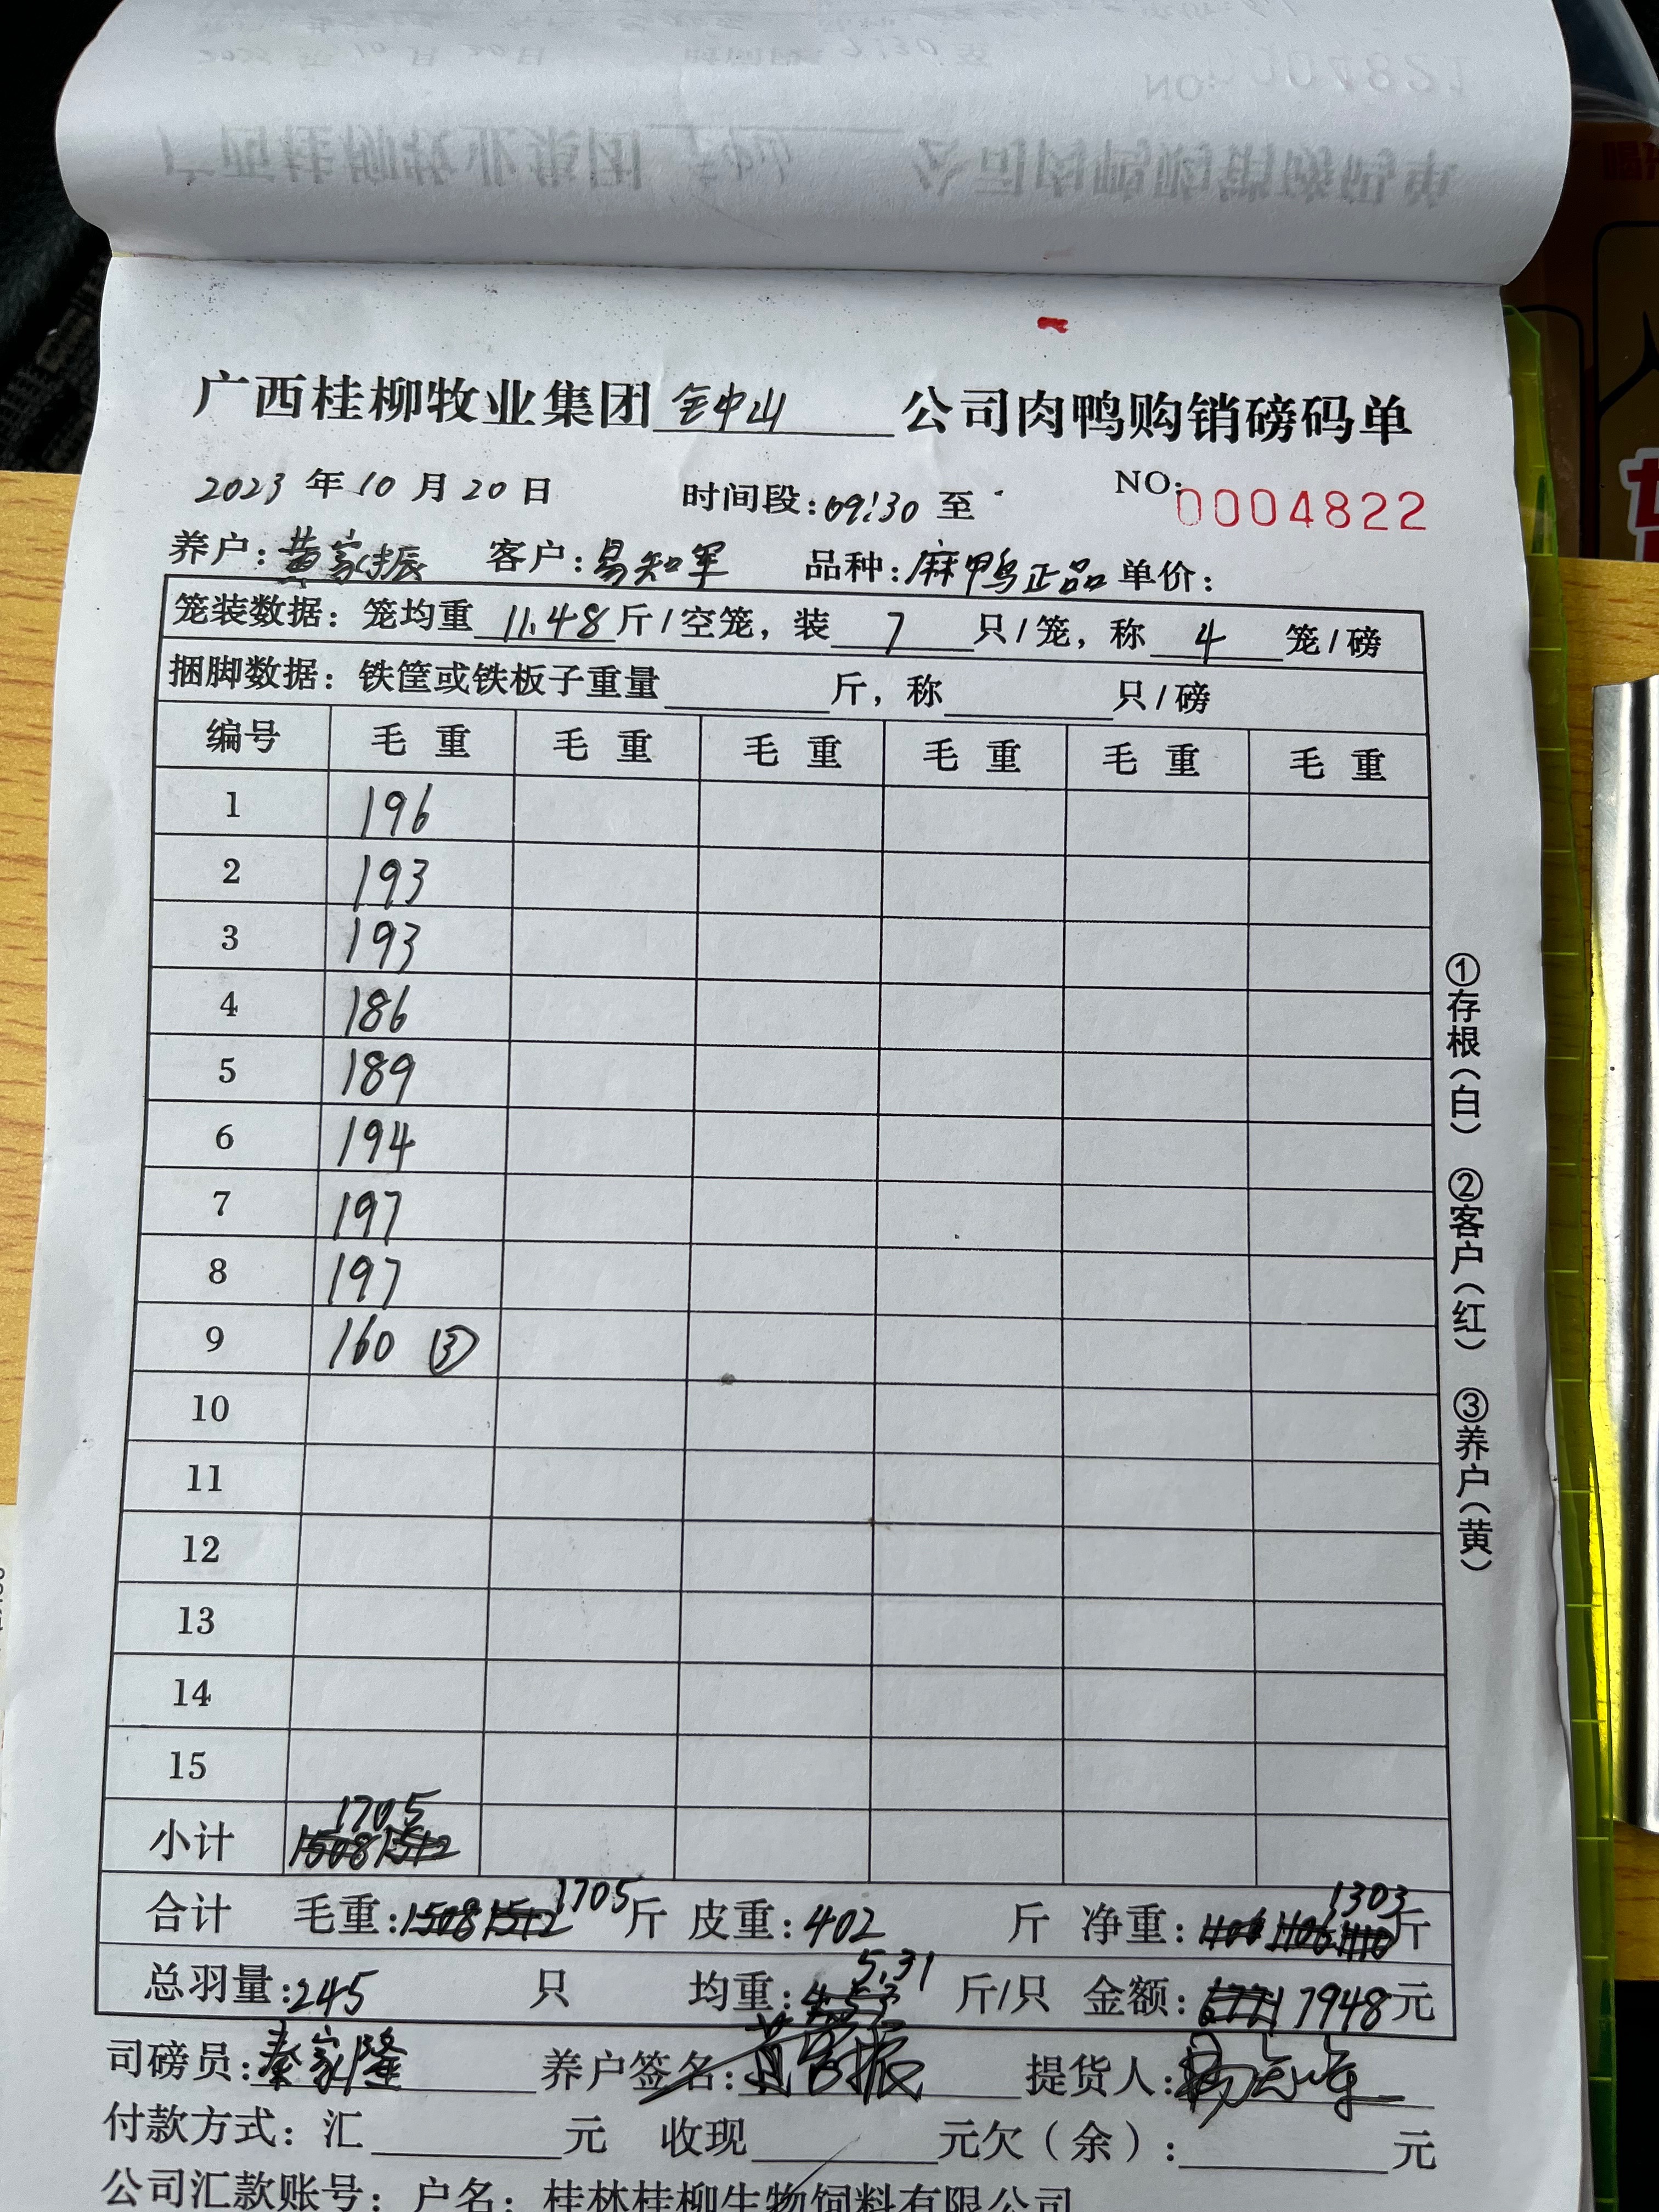 广西桂柳牧业集团 钟山 公司肉鸭购销磅码单
2023 年 10 月 20 日 时间段:09:30 至 NO:0004822
养户:黄家振 客户:易知军 品种:麻鸭正品 单价:
笼装数据: 笼均重 11.48 斤/空笼, 装 7 只/笼, 称 4 笼/磅
捆脚数据: 铁筐或铁板子重量 斤, 称 只/磅
编号 毛重 毛重 毛重 毛重 毛重 毛重
1 196
2 193
3 193
4 186
5 189
6 194
7 197
8 197
9 160 ③
10
11
12
13
14
15
小计 1508 1512 1705
合计 毛重:1508 1512 1705 斤 皮重:402 斤 净重:1106 1110 1303 斤
总羽量:245 只 均重:4.53 5.31 斤/只 金额:7948 元
司磅员:秦家隆 养户签名:黄家振 提货人:
付款方式: 汇 元 收现 元欠(余): 元
公司汇款账号: 户名: 桂林桂柳生物饲料有限公司
①存根(白) ②客户(红) ③养户(黄)